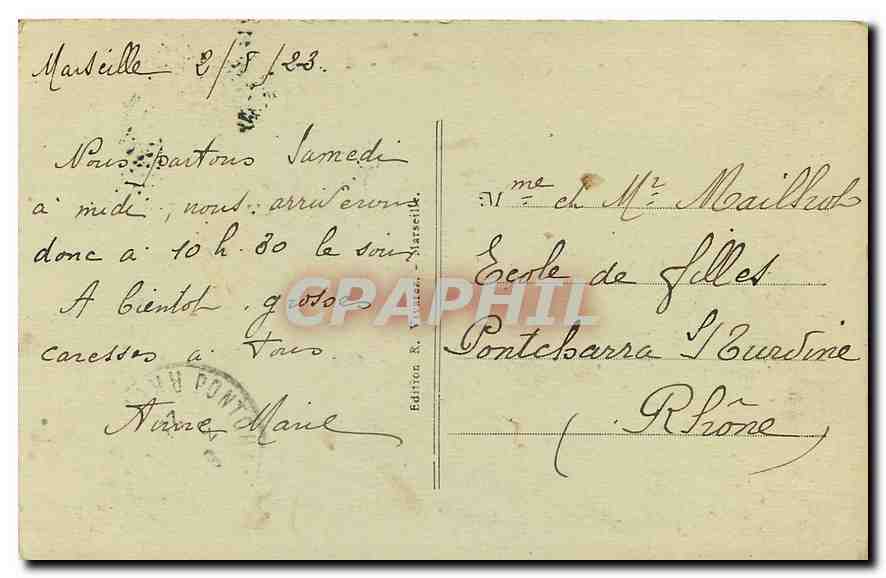 Marseille 2/8/23.
Nous partons Samedi
à midi, nous arriverons
donc à 10 h. 30 le soir
A bientot, grosses
caresses à tous.
Anne Marie
Edition R. - Marseille.
Mme et Mr
Ecole de filles
Pontcharra S/Turdine
(Rhône)
PONTCH
CARAPHIL